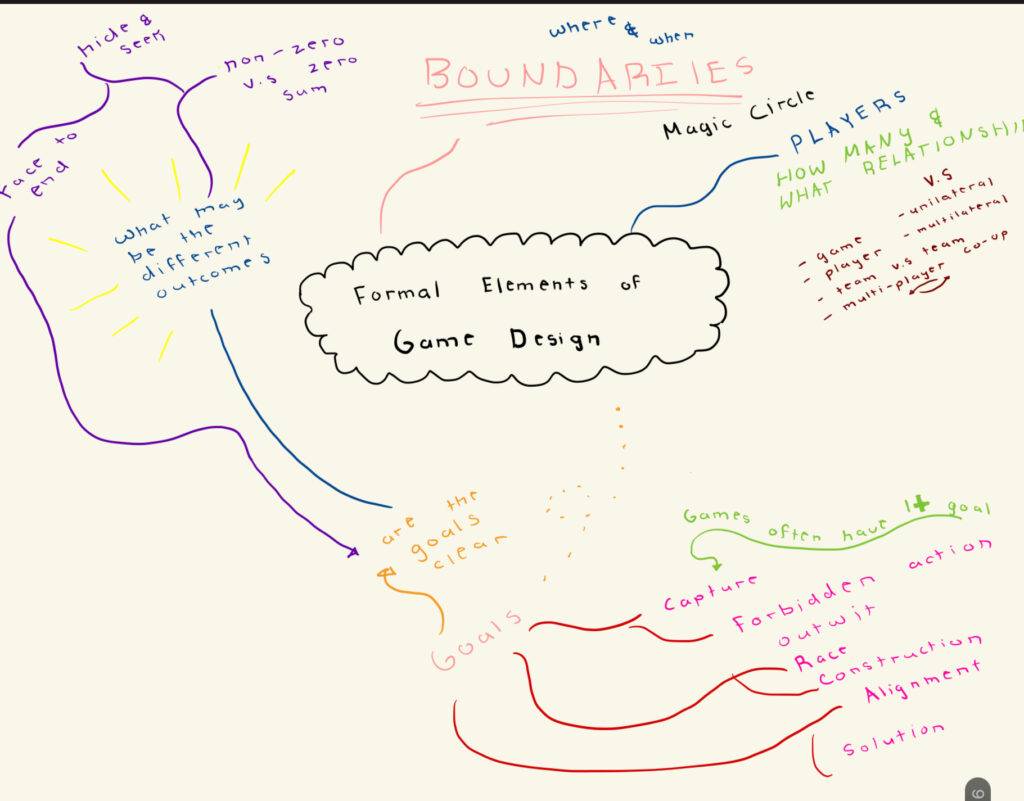 hide &
seek
non-zero
v.s zero
sum
race to
end
what may
be the
different
outcomes
where &
when
BOUNDARIES
Magic Circle
PLAYERS
HOW MANY &
WHAT RELATIONSHI
v.s
- unilateral
- multilateral
- game
- player
- team v.s team
- multi-player co-op
Formal Elements of
Game Design
are the
goals
clear
Goals
Games often have 1+ goal
Capture
Forbidden action
outwit
Race
Construction
Alignment
Solution
6